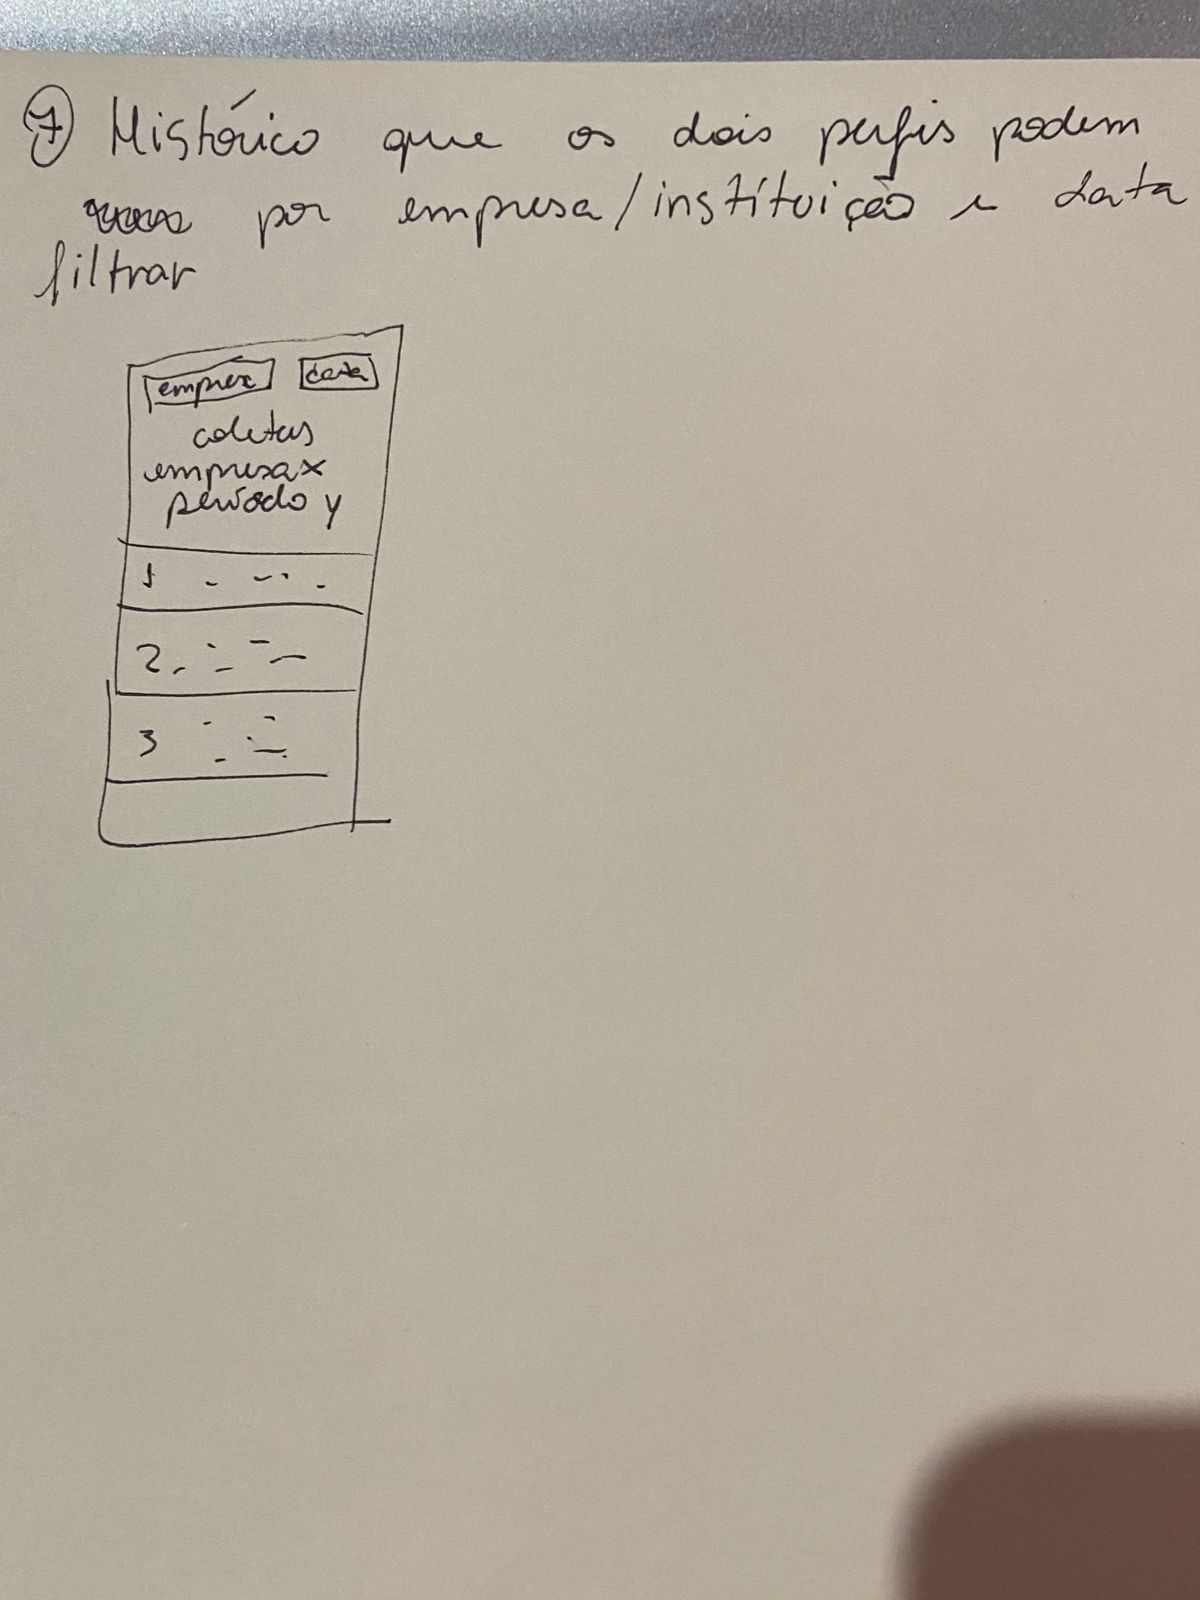 7 Histórico que os dois perfis podem
por empresa/instituição e data
filtrar
empresa data
coletas
empresa x
período y
1
2.
3